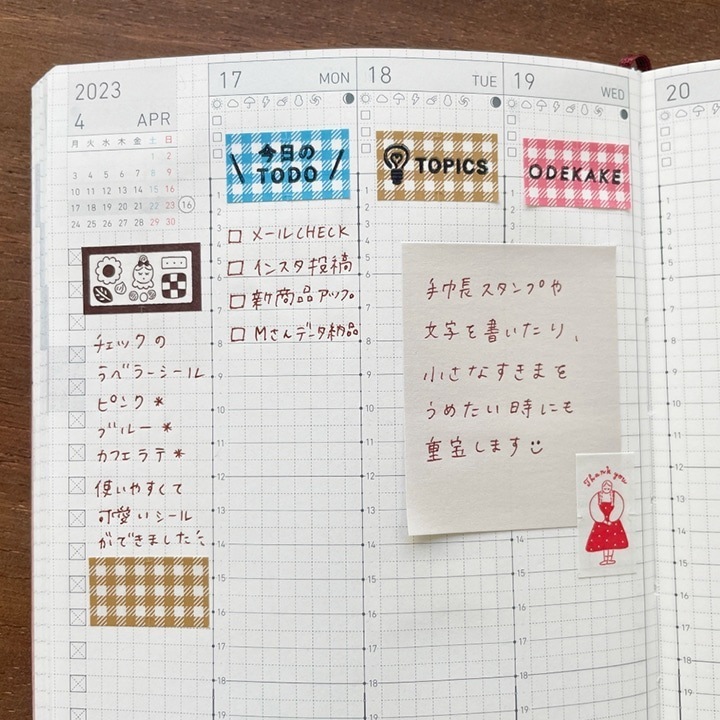 2023
4 APR
月 火 水 木 金 土 日
1 2
3 4 5 6 7 8 9
10 11 12 13 14 15 16
17 18 19 20 21 22 23
24 25 26 27 28 29 30
16
チェックの
ラベラーシール
ピンク*
ブルー*
カフェラテ*
使いやすくて
可愛いシール
ができました
17 MON
今日の
TODO
メールCHECK
インスタ投稿
新商品アップ
Mさんデータ納品
18 TUE
TOPICS
19 WED
ODEKAKE
手帳スタンプや
文字を書いたり、
小さなすきまを
うめたい時にも
重宝します
Thank you
20